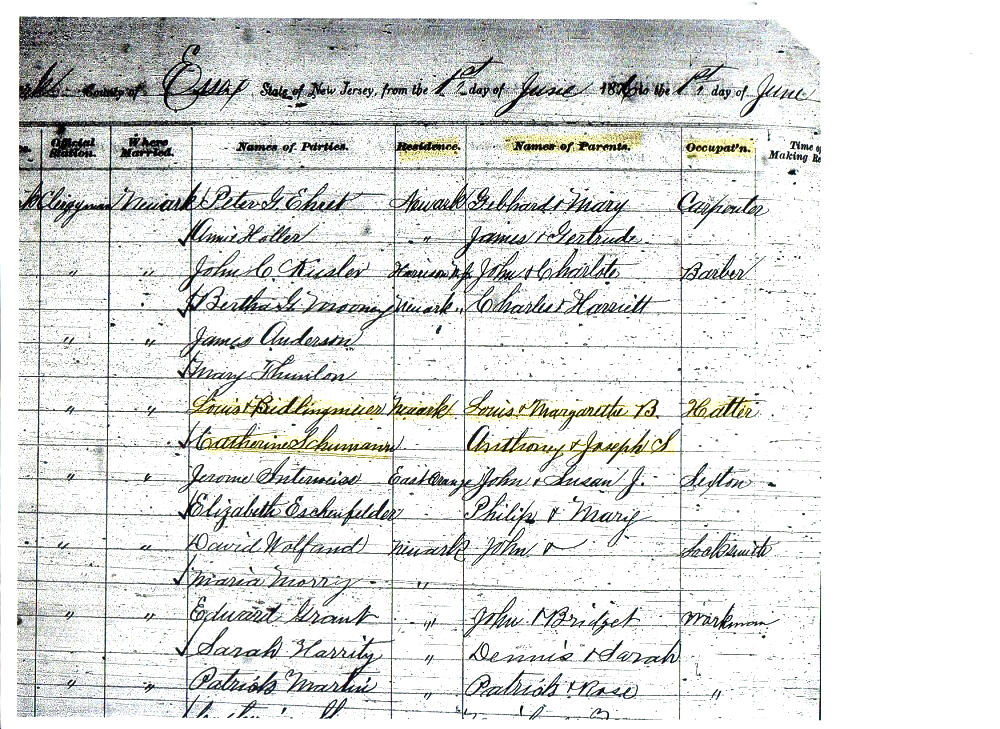 County of Essex State of New Jersey, from the 1st day of June 187 to the 1st day of June
Official Station. Where Married. Names of Parties. Residence. Names of Parents. Occupat'n. Time of Making Re
k Clergyman Newark Peter G. Ehret Newark Gebhard & Mary Carpenter
Annie Holler " James & Gertrude
" " John C Kusler Harrison N.J. John & Charlote Barber
" Bertha G. Mooney Newark Charles & Harriett
" " James Anderson
Mary
" " Louis Bidlingmeier Newark Louis & Margarethe B. Hatter
Catherine Schumann Anthoney & Joseph S
" " Jerome East Orange John & Susan J. Sexton
Elizabeth Eschenfelder Philip & Mary
" " David Wolfand Newark John & Locksmith
Maria Morry "
" " Edward Grant " John & Bridget Workman
Sarah Harrity " Dennis & Sarah
" " Patrick Martin " Patrick & Rose "